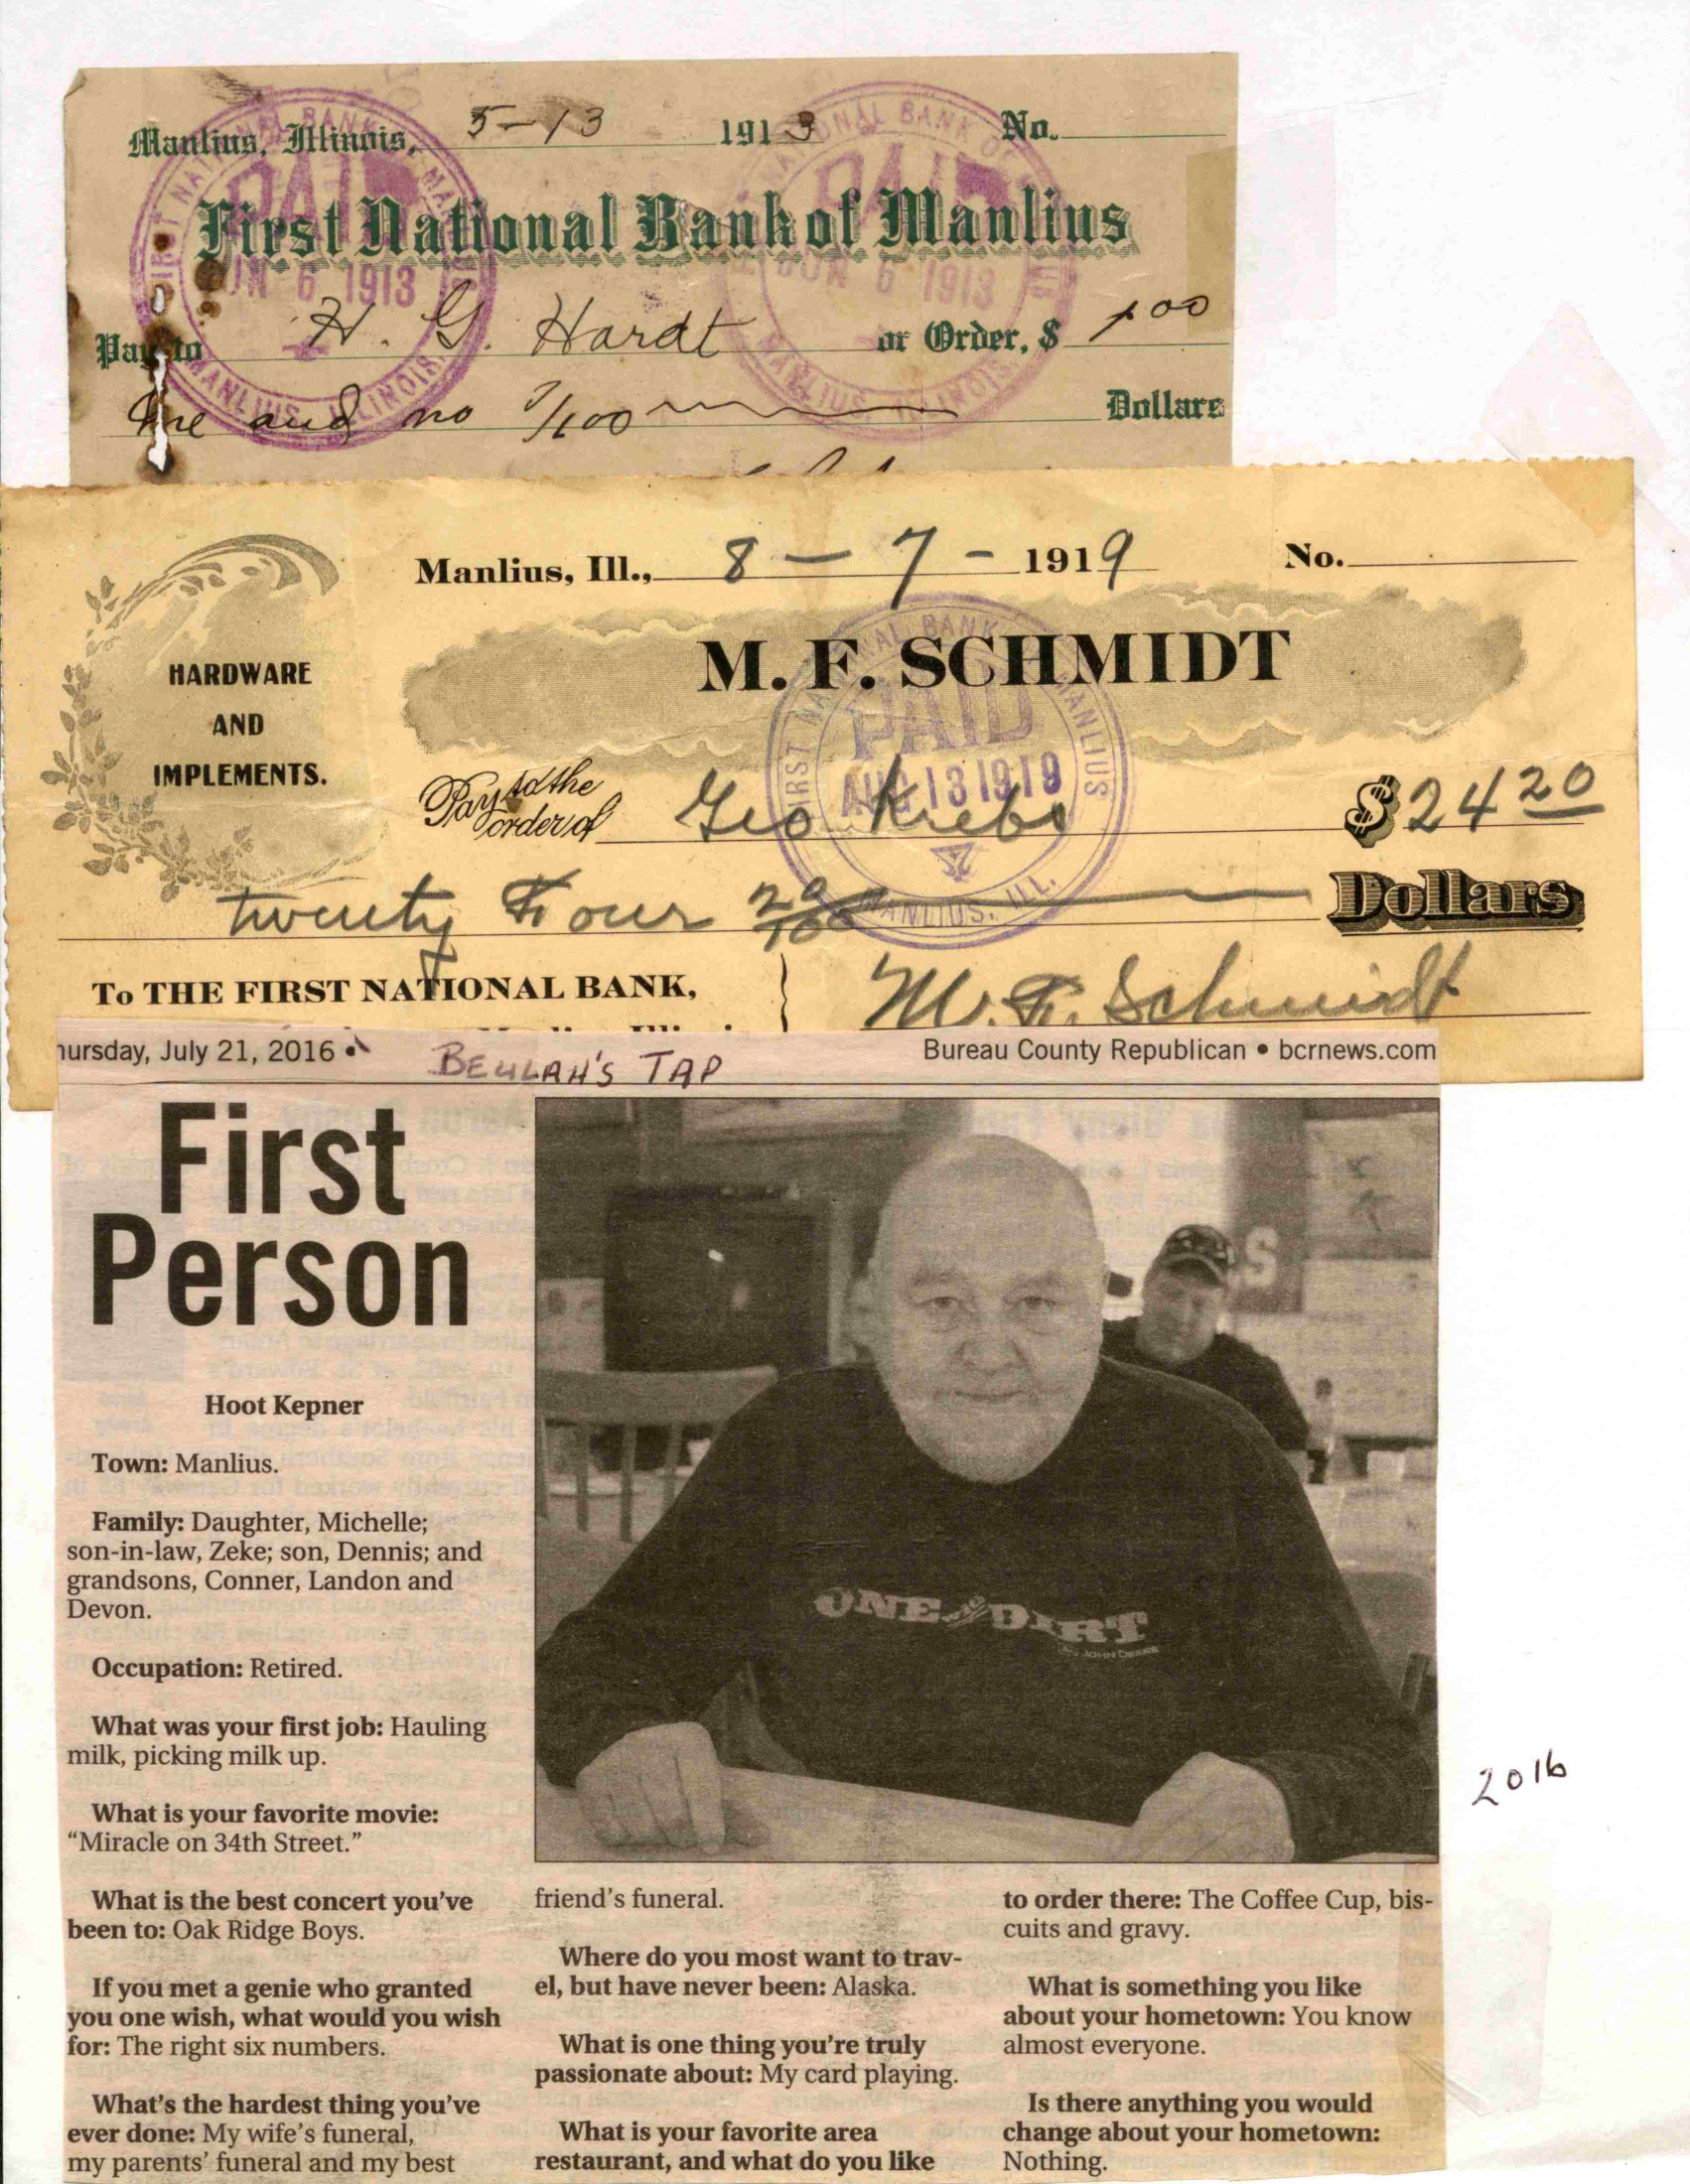 Manlius, Illinois, 5-13 1913 No.
First National Bank of Manlius
FIRST NATIONAL BANK OF MANLIUS
PAID
JUN 6 1913
MANLIUS, ILLINOIS.
PAID
JUN 6 1913
MANLIUS, ILLINOIS.
Pay to H. G. Hardt or Order, $ 1 00
One and no /100 Dollars
Manlius, Ill., 8 - 7 - 1919 No.
HARDWARE
AND
IMPLEMENTS.
M. F. SCHMIDT
FIRST NATIONAL BANK MANLIUS
PAID
AUG 13 1919
MANLIUS, ILL.
Pay to the
order of Geo Krebs $ 24 20
twenty Four 20/100 Dollars
To THE FIRST NATIONAL BANK,
M. F. Schmidt
hursday, July 21, 2016 •
BEULAH'S TAP
Bureau County Republican • bcrnews.com
First
Person
S
ONE DIRT
JOHN DEERE
2016
Hoot Kepner
Town: Manlius.
Family: Daughter, Michelle;
son-in-law, Zeke; son, Dennis; and
grandsons, Conner, Landon and
Devon.
Occupation: Retired.
What was your first job: Hauling
milk, picking milk up.
What is your favorite movie:
“Miracle on 34th Street.”
What is the best concert you’ve
been to: Oak Ridge Boys.
If you met a genie who granted
you one wish, what would you wish
for: The right six numbers.
What’s the hardest thing you’ve
ever done: My wife’s funeral,
my parents’ funeral and my best
friend’s funeral.
Where do you most want to trav-
el, but have never been: Alaska.
What is one thing you’re truly
passionate about: My card playing.
What is your favorite area
restaurant, and what do you like
to order there: The Coffee Cup, bis-
cuits and gravy.
What is something you like
about your hometown: You know
almost everyone.
Is there anything you would
change about your hometown:
Nothing.